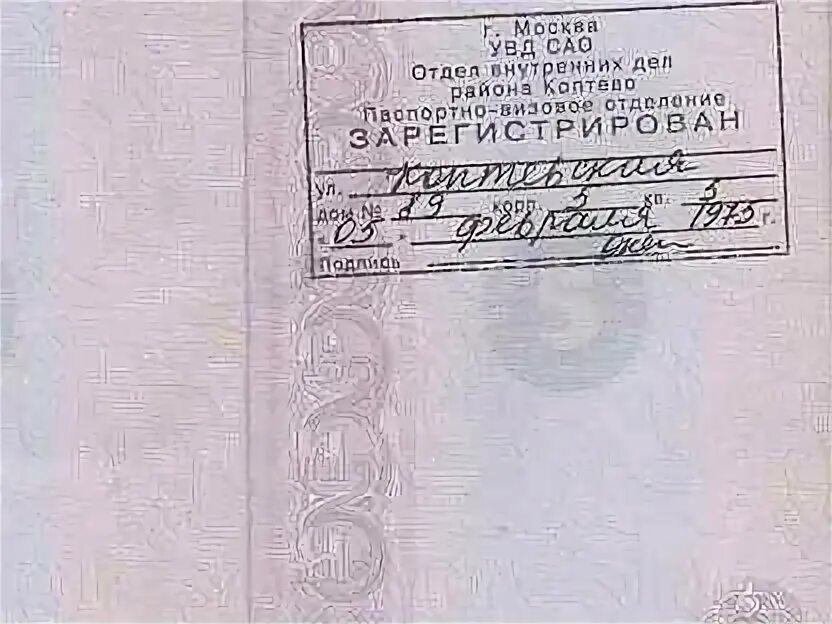 г. Москва
УВД САО
Отдел внутренних дел
района Коптево
Паспортно-визовое отделение
ЗАРЕГИСТРИРОВАН
ул. Коптевская
дом № 89 корп. 5 кв. 5
" 05 " февраля 1975 г.
Подпись